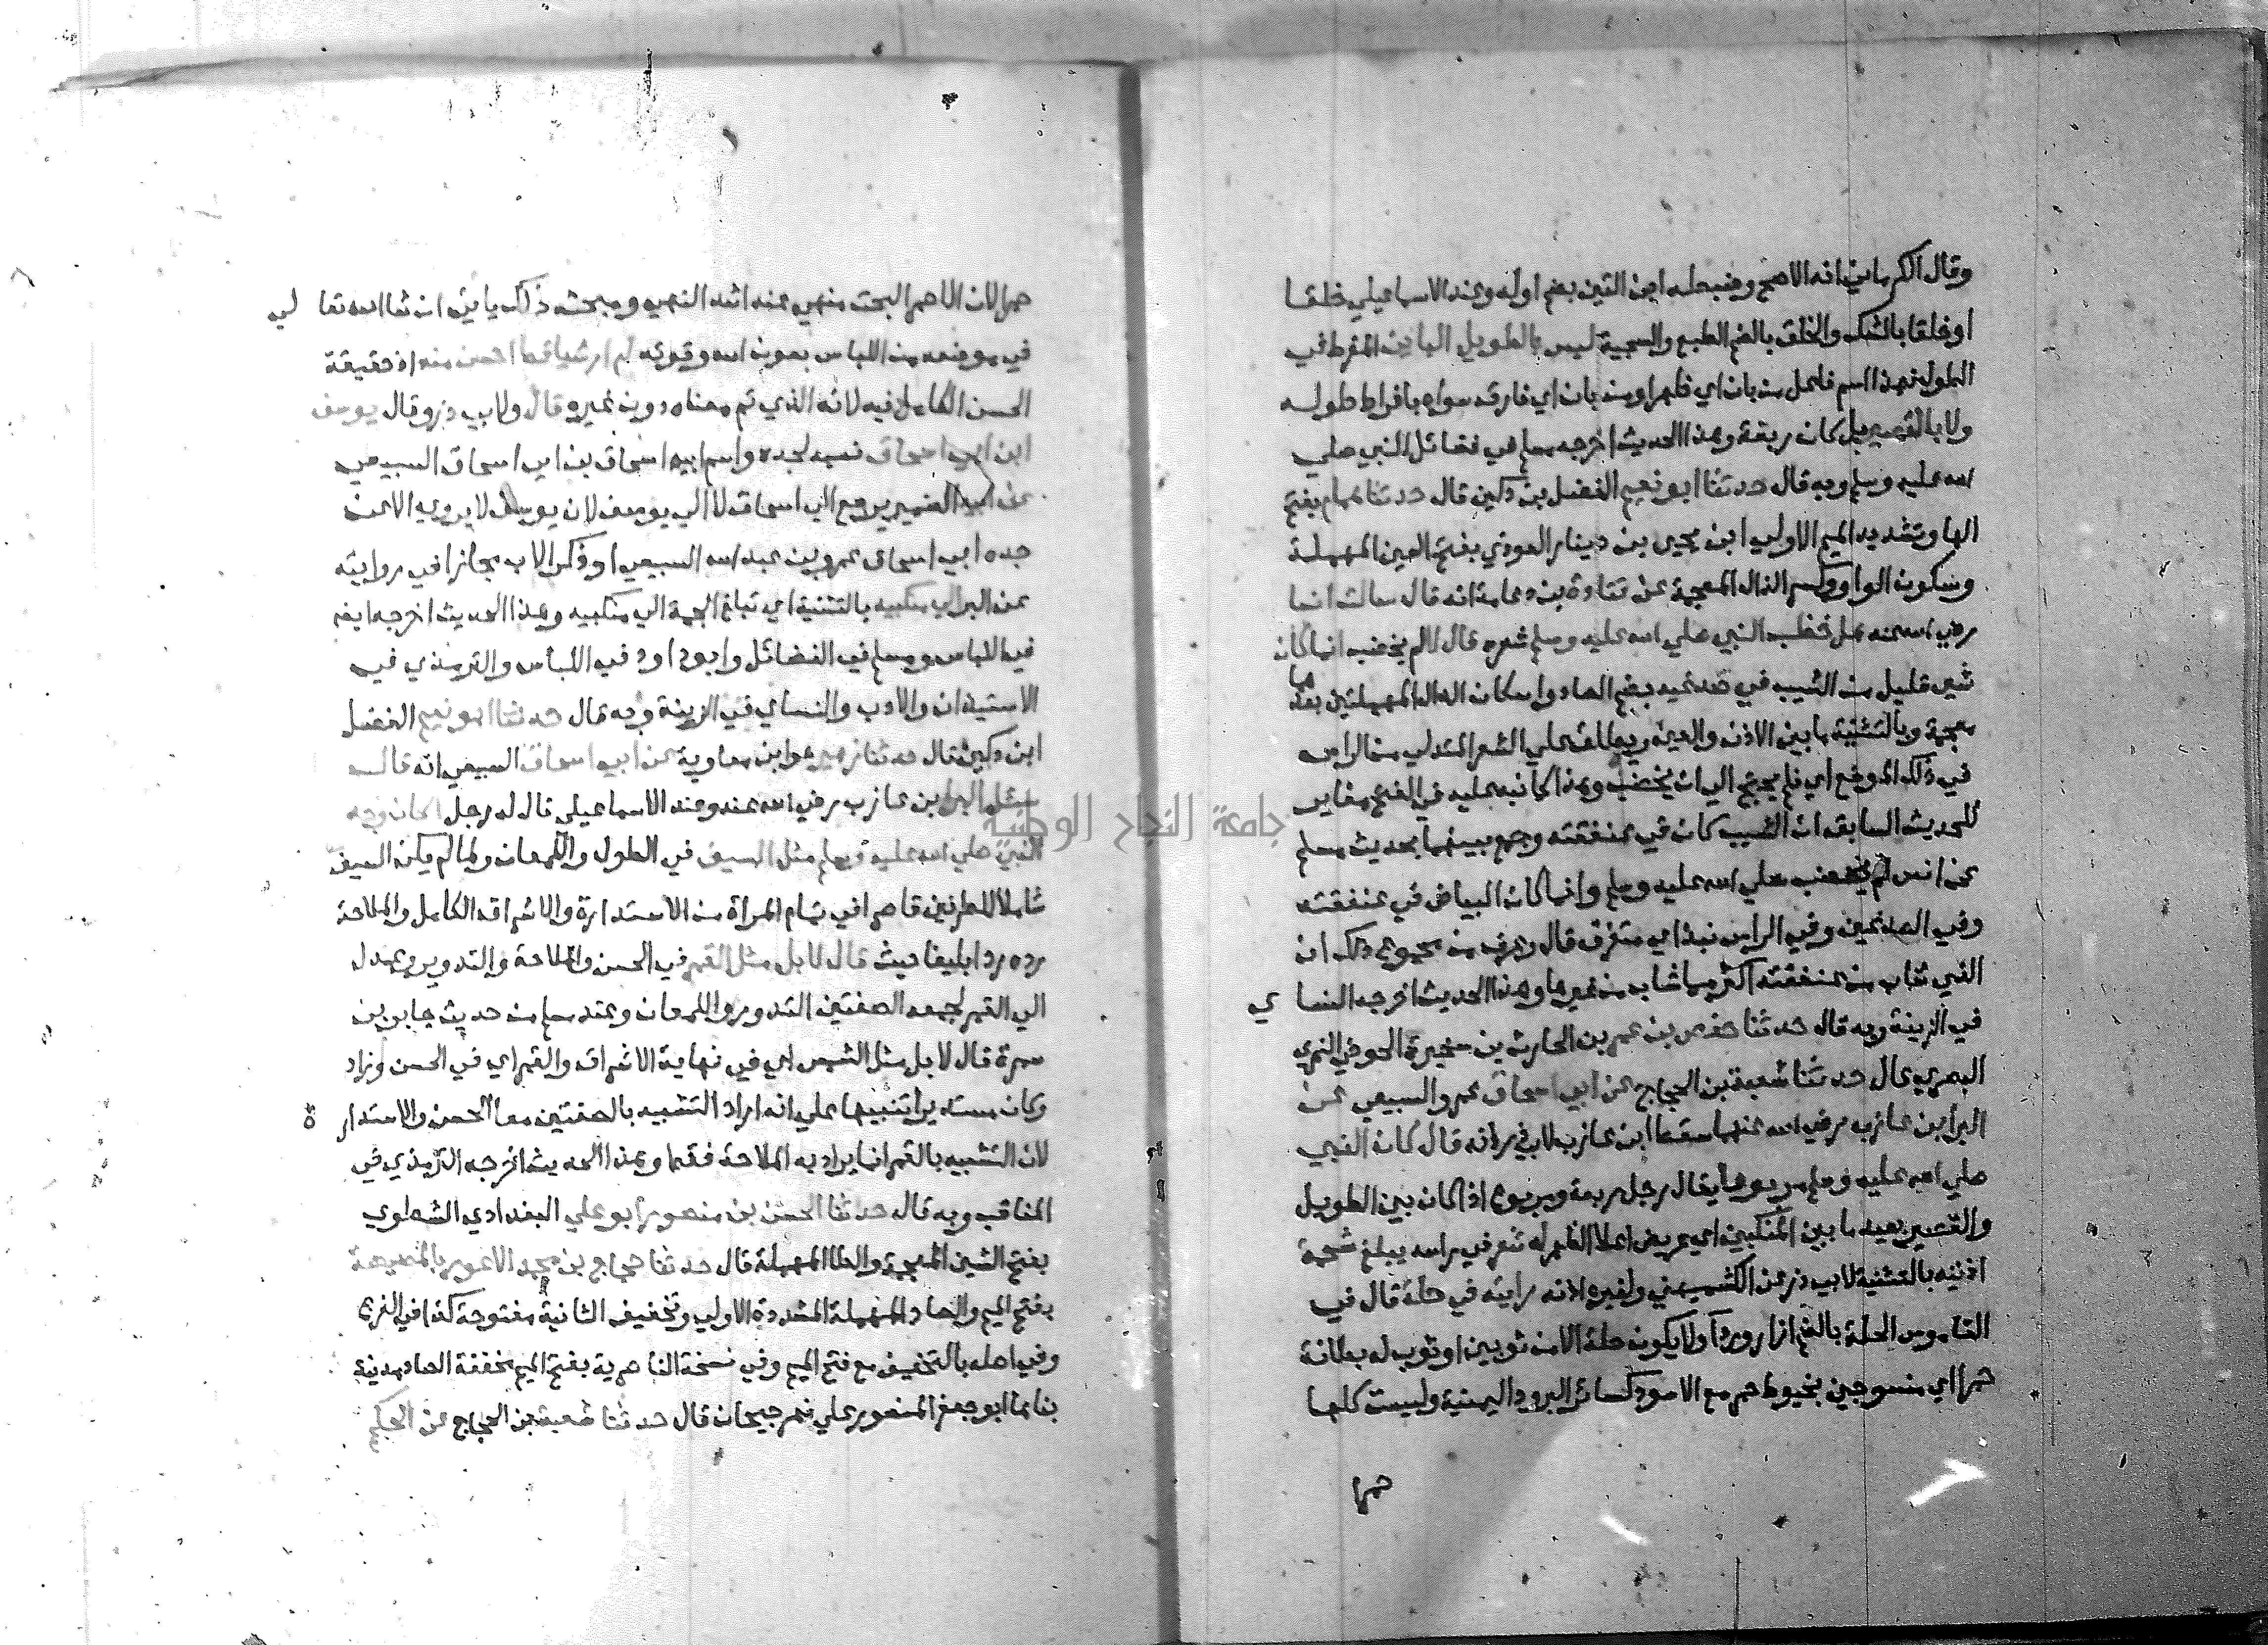 وقال الكرماني انه الاصح وضبطه ابن التين بضم اوله وعند الاسماعيلي خلقا
او خلقا بالشك والخلق بالضم الطبع والسجية ليس بالطويل الباين المفرط في
الطول فهذا اسم فاعل من بان اي ظهر او من بان اي فارق سواه بافراط طوله
ولا بالقصير بل كان ربعة وهذا الحديث اخرجه مسلم في فضائل النبي صلي
الله عليه وسلم وبه قال حدثنا ابو نعيم الفضل بن دكين قال حدثنا همام بفتح
الها وتشديد الميم الاولي ابن يحيي بن دينار العوذي بفتح العين المهملة
وسكون الواو وكسر الذال المعجمة عن قتادة بن دعامة انه قال سالت انسا
رضي الله عنه هل خضب النبي صلي الله عليه وسلم شعره قال لا لم يخضب انما كان
شي قليل من الشيب في صدغيه بضم الصاد واسكان الدال المهملتين بعدها
معجمة وبالتثنية ما بين الاذن والعين ويطلق علي الشعر المتدلي من الراس
في ذلك الموضع اي فلم يحتج الي ان يخضب وهذا كما نبه عليه في الفتح مغاير
للحديث السابق ان الشيب كان في عنفقته وجمع بينهما بحديث مسلم
عن انس لم يخضب صلي الله عليه وسلم وانما كان البياض في عنفقته
وفي الصدغين وفي الراس نبذ اي متفرق قال وعرف من مجموع ذلك ان
الذي شاب من عنفقته اكثر مما شاب من غيرها وهذا الحديث اخرجه النساي
في الزينة وبه قال حدثنا حفص بن عمر بن الحارث بن سخبرة الحوضي النمري
البصري قال حدثنا شعبة بن الحجاج عن ابي اسحاق عمرو السبيعي عن
البرا بن عازب رضي الله عنهما سقط ابن عازب لابي ذر انه قال كان النبي
صلي الله عليه وسلم مربوعا يقال رجل ربعة ومربوع اذا كان بين الطويل
والقصير بعيد ما بين المنكبين اي عريض اعلا الظهر له شعر في راسه يبلغ شحمة
اذنيه بالتثنية لابي ذر عن الكشميهني ولغيره اذنه رايته في حلة قال في
القاموس الحلة بالضم ازار وردا ولا يكون حلة الا من ثوبين او ثوب له بطانة
حمرا اي منسوجين بخيوط حمر مع الاسود كسائر البرود اليمنية وليست كلها
حمرا
حمرا لان الاحمر البحت منهي عنه اشد النهي ومبحث ذلك ياتي ان شا الله تعالي
في موضعه من اللباس بعون الله وقوته لم ار شيا قط احسن منه اذ حقيقة
الحسن الكامل فيه لانه الذي تم معناه دون غيره قال ولابي ذر وقال يوسف
ابن ابي اسحاق نسبه لجده واسم ابيه اسحاق بن ابي اسحاق السبيعي
عن ابيه الضمير يرجع الي اسحاق لا الي يوسف لان يوسف لا يروي الا عن
جده ابي اسحاق عمرو بن عبد الله السبيعي او ذكر الاب مجازا في روايته
عن البرا الي منكبيه بالتثنية اي تبلغ الجمة الي منكبيه وهذا الحديث اخرجه ايضا
في اللباس ومسلم في الفضائل وابو داود في اللباس والترمذي في
الاستيذان والادب والنساي في الزينة وبه قال حدثنا ابو نعيم الفضل
ابن دكين قال حدثنا زهير هو ابن معاوية عن ابي اسحاق السبيعي انه قال
سئل البرا بن عازب رضي الله عنه وعند الاسماعيلي قال له رجل اكان وجه
النبي صلي الله عليه وسلم مثل السيف في الطول واللمعان ولما لم يكن السيف
شاملا للطرفين قاصرا في تمام المراة من الاستدارة والاشراق الكامل والملاحة
رده ردا بليغا حيث قال لا بل مثل القمر في الحسن والملاحة والتدوير وعدل
الي القمر لجمعه الصفتين التدوير واللمعان وعند مسلم من حديث جابر بن
سمرة قال لا بل مثل الشمس اي في نهاية الاشراق والقمر اي في الحسن وزاد
وكان مستديرا تنبيها علي انه اراد التشبيه بالصفتين معا الحسن والاستدارة
لان التشبيه بالقمر انما يراد به الملاحة فقط وهذا الحديث اخرجه الترمذي في
المناقب وبه قال حدثنا الحسن بن منصور ابو علي البغدادي الشطوي
بفتح الشين المعجمة والطا المهملة قال حدثنا حجاج بن محمد الاعور بالمصيصة
بفتح الميم والصاد المهملة المشددة الاولي وتخفيف الثانية مفتوحة كذا في الفرع
وفي اصله بالتخفيف مع فتح الميم وفي نسخة الناصرية بفتح الميم مخففة الصاد مدينة
بناها ابو جعفر المنصور علي نهر جيحان قال حدثنا شعبة بن الحجاج عن الحكم
جامعة النجاح الوطنية